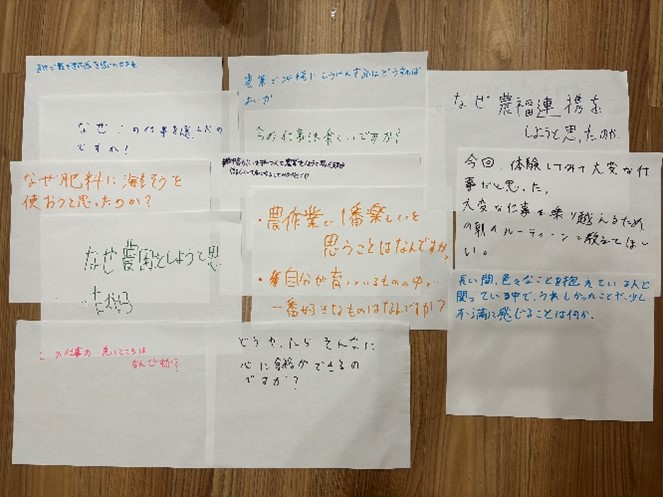 なぜこの仕事を選んだの
ですか!
なぜ肥料に海そうを
使おうと思ったのか?
なぜ農園をしようと思
ったか
この仕事の良いところは
なんですか?
農業で
どうすれば
よいか
今の仕事は楽しいですか?
・農作業で1番楽しいと
思うことはなんですか。
・自分が育ているものの中で
一番好きなものはなんですか?
どうやったらそんなに
心に余裕ができるの
ですか?
なぜ農福連携を
しようと思ったのか
今回、体験してみて大変な仕
事だと思った。
大変な仕事を乗り越えるため
の朝のルーティーンを教えてほし
い。
長い間、色々なことを抱えている人と
関っている中で、うれしかったことや、少し
不満に感じることは何か。